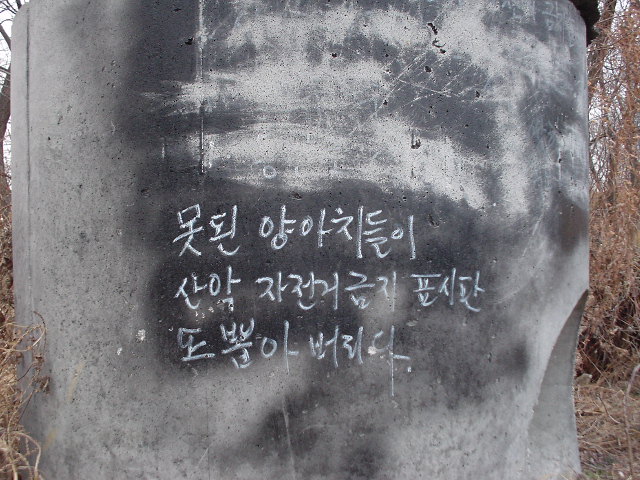 못된 양아치들이
산악 자전거금지 표시판
또 뽑아 버리다